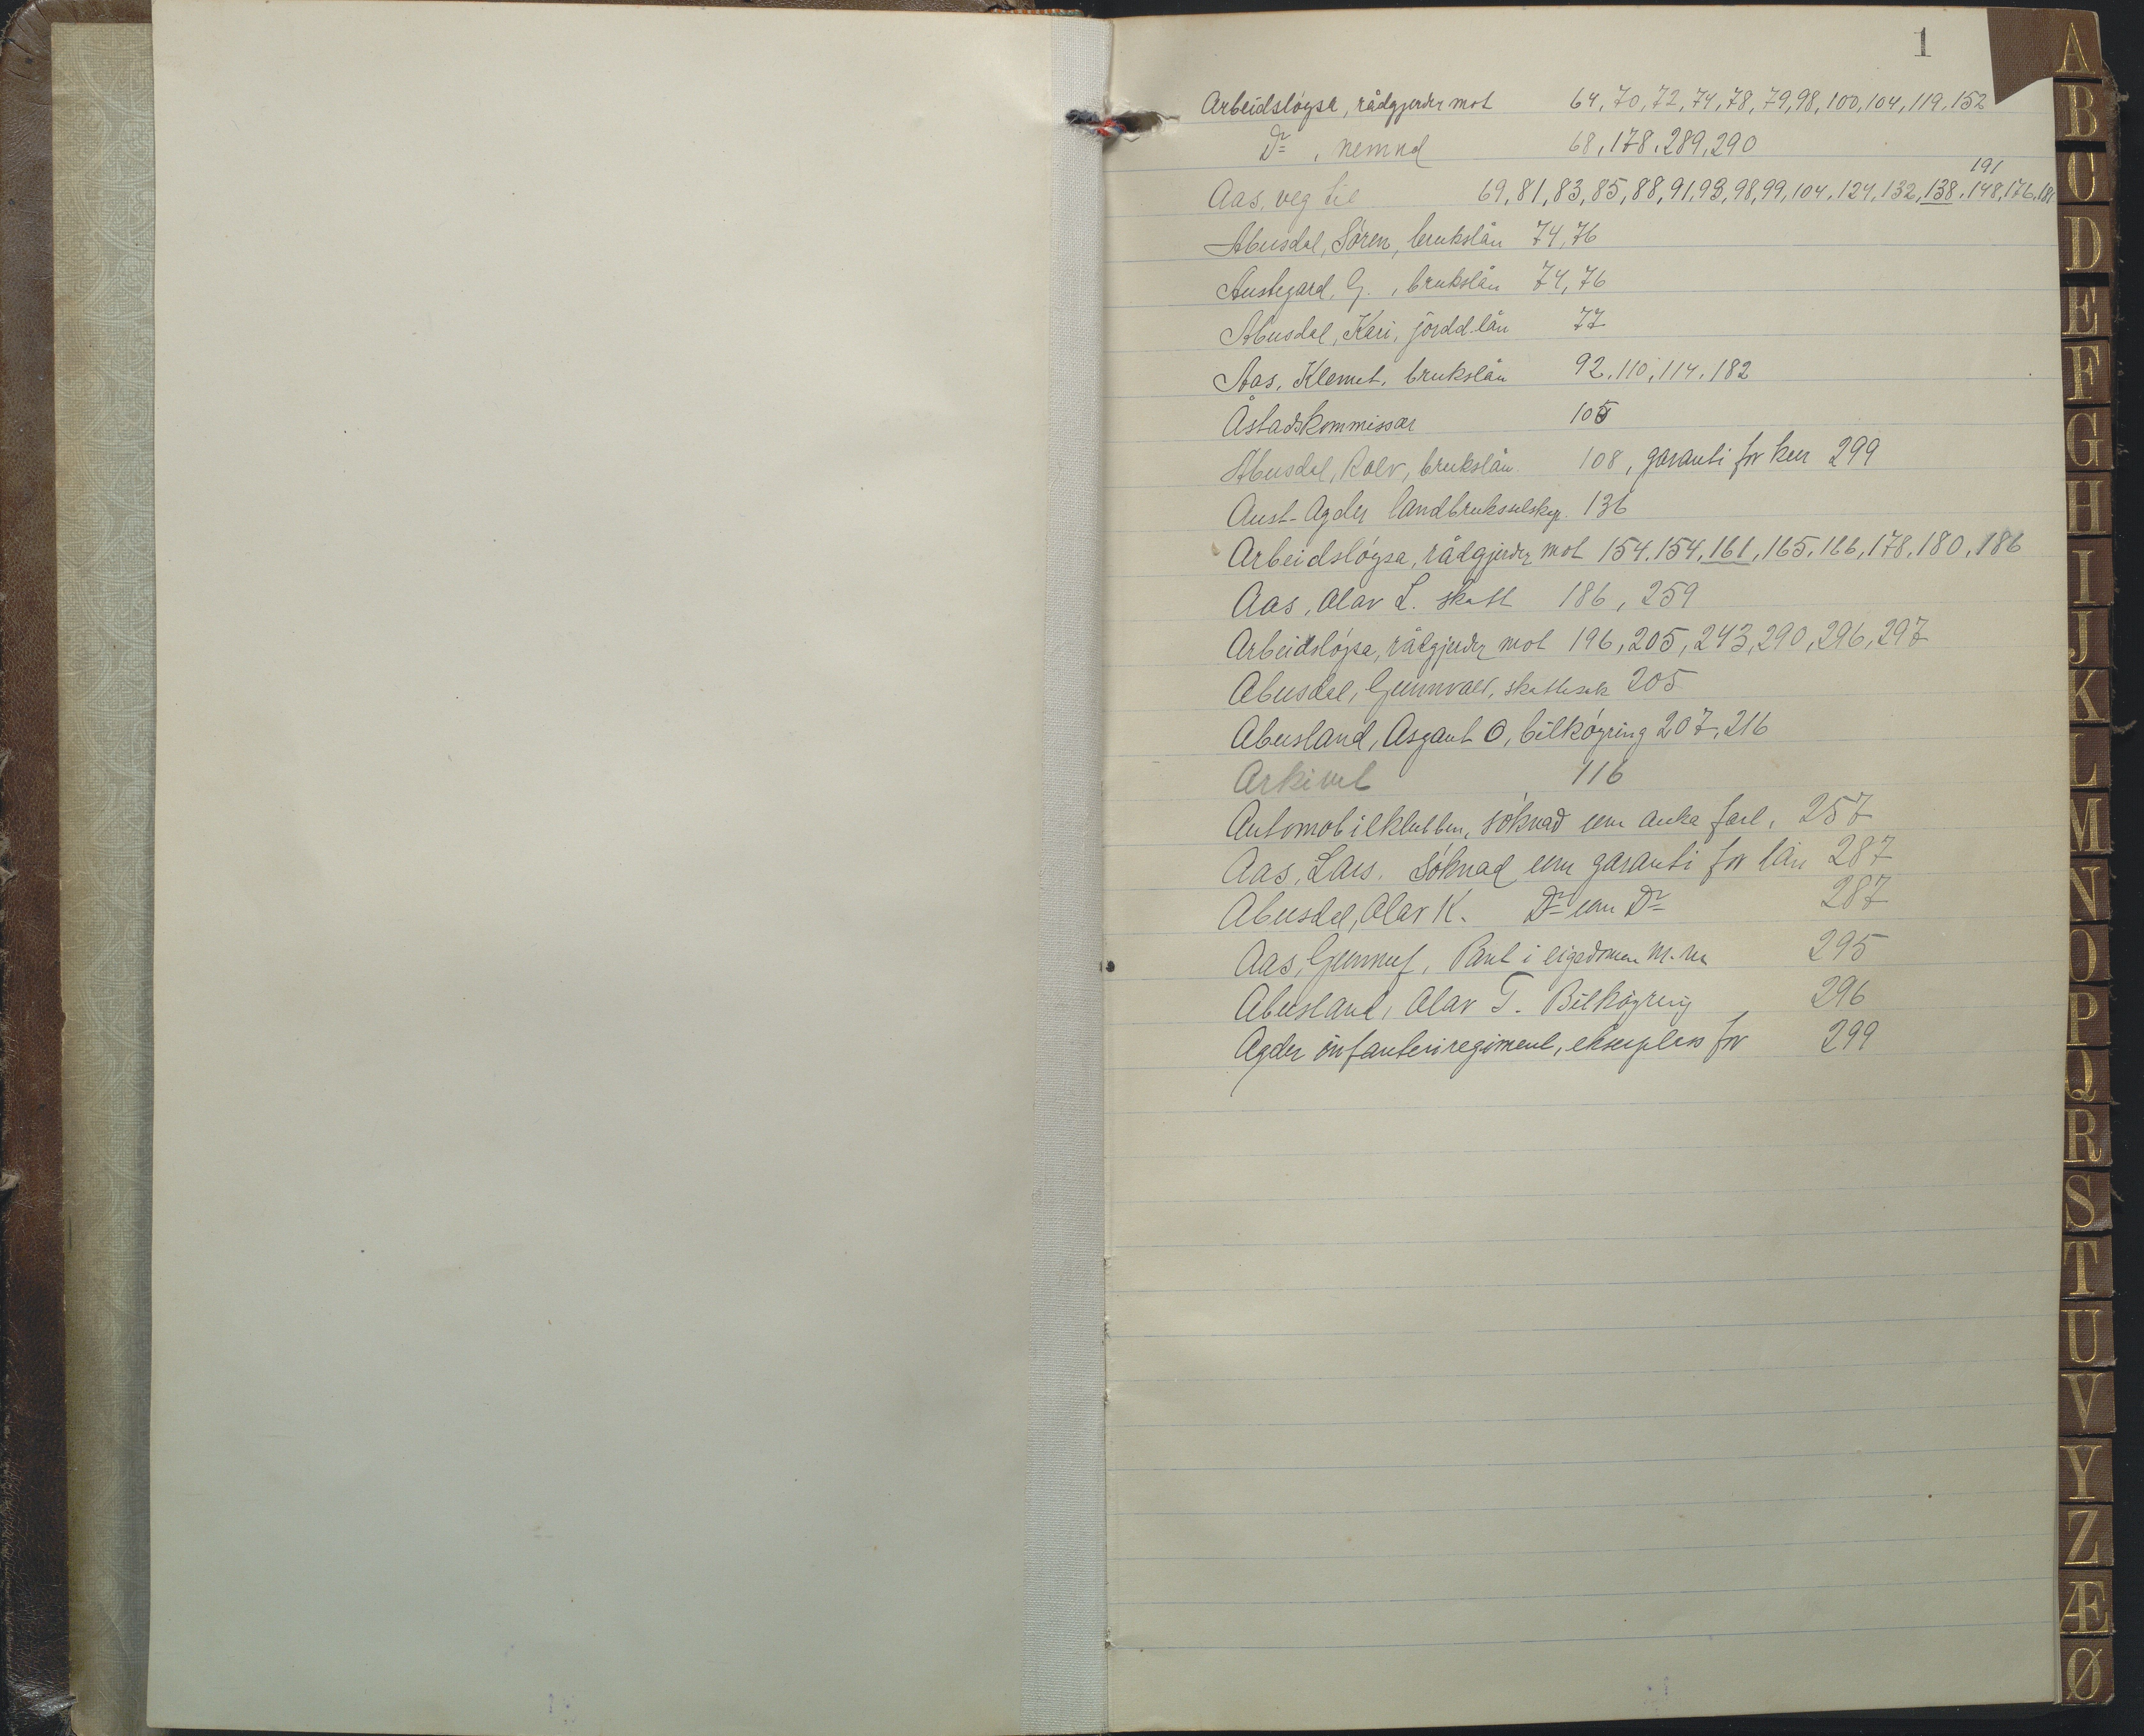 1
Arbeidsløysa, rådgjerder mot 64, 70, 72, 74, 78, 79, 98, 100, 104, 119, 152
Do, nemnd 68, 178, 289, 290
191
Aas, veg til 69, 81, 83, 85, 88, 91, 93, 98, 99, 104, 124, 132, 138, 148, 176, 181
Abusdal, Sören, brukslån 74, 76
Austegard, G., brukslån 74, 76
Abusdal, Kari, jordd.lån 77
Aas, Klemet, brukslån 92, 110, 114, 182
Åstadskommissær 105
Abusdal, Rolv, brukslån 108, garanti for 299
Aust-Agder landbruksselskap. 136
Arbeidsløysa, rådgjerder mot 154, 154, 161, 165, 166, 178, 180, 186
Aas, Olav L. skatt 186, 259
Arbeidsløysa, rådgjerder mot 196, 205, 243, 290, 296, 297
Abusdal, Gunnvald, skattesak 205
Abusland, Asgaut O, bilkøyring 207, 216
Arkivet 116
Automobilklubben, søknad um auka fart, 257
Aas, Lars. Søknad um garanti for lån 287
Abusdal, Olav K. Do um Do 287
Aas, Gunnuf, Pant i eigedomen m.m 295
Abusland, Olav T. Bilkøyring 296
Agder infanteriregiment, ekserplass for 299
A
B
C
D
E
F
G
H
I
J
K
L
M
N
O
P
Q
R
S
T
U
V
Y
Z
Æ
Ø